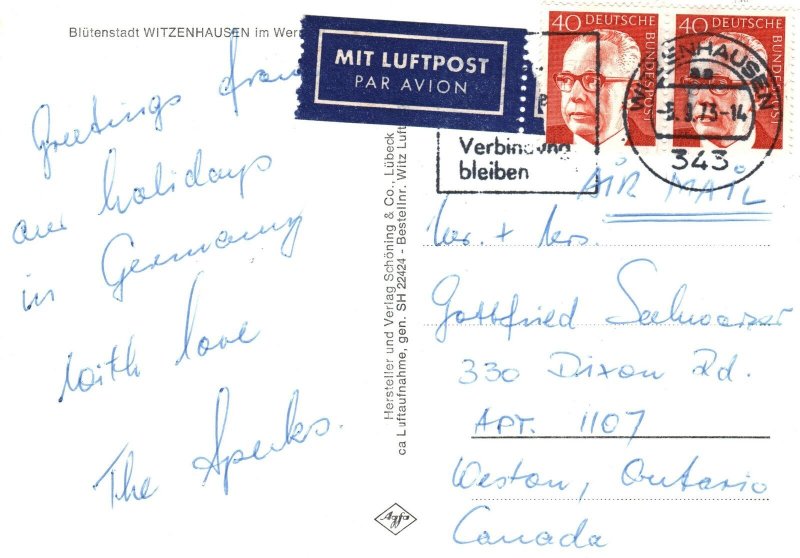 Blütenstadt WITZENHAUSEN im Wer
MIT LUFTPOST
PAR AVION
40 DEUTSCHE BUNDESPOST
40 DEUTSCHE BUNDESPOST
WITZENHAUSEN
73-14
343
Verbindung
bleiben
Greetings from
our holidays
in Germany
with love
The Aperks.
Hersteller und Verlag Schöning & Co., Lübeck
ca Luftaufnahme, gen. SH 22424 - Bestellnr. Witz Luft
Agfa
AIR MAIL
Mr. + Mrs.
Gottfried Schwarzer
330 Dixon Rd.
APT. 1107
Weston, Ontario
Canada